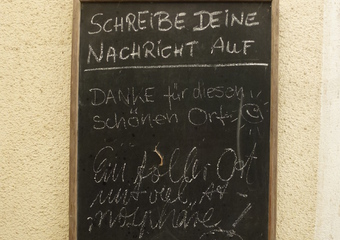 SCHREIBE DEINE
NACHRICHT AUF
DANKE für diesen
schönen Ort!
Ein toller Ort
mit viel At-
mosphäre